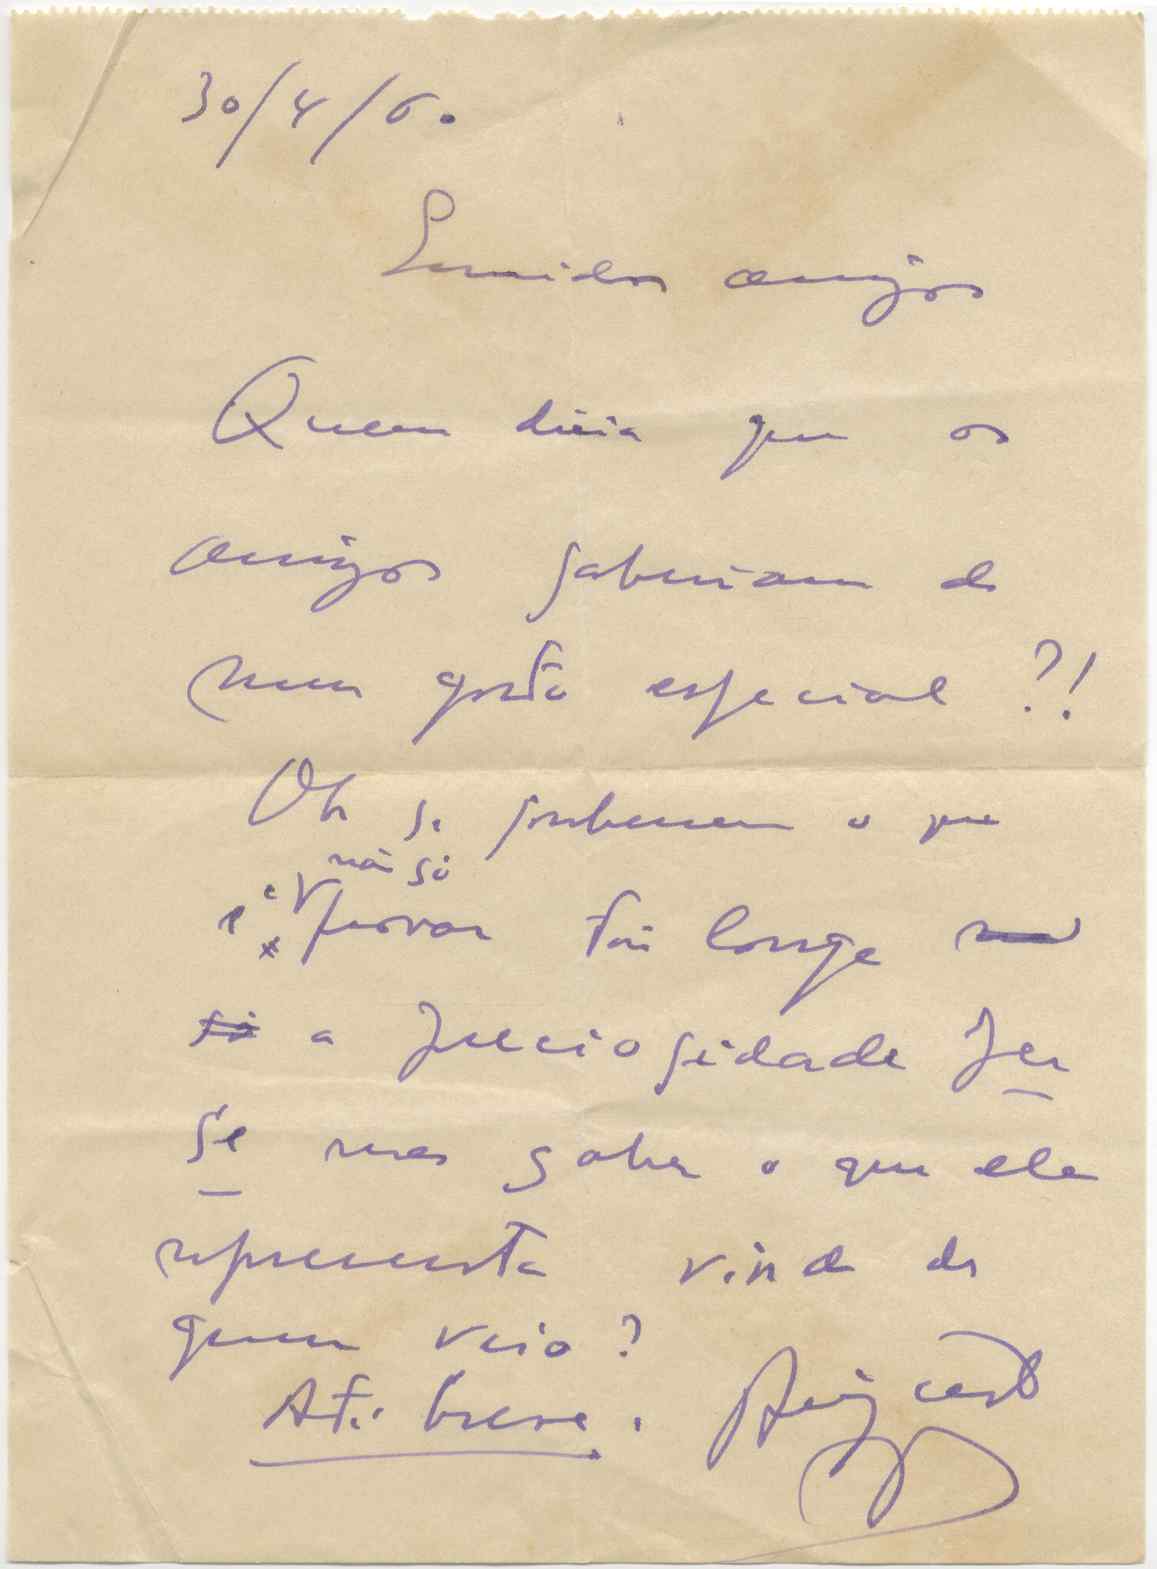 30/4/60
amigos
Quem diria que os
amigos saberiam do
meu gosto especial?!
Oh se soubessem o que
não só
provar tão longe
a preciosidade
se mas saber o que ela
representa vinda de
quem veio?
Até breve.